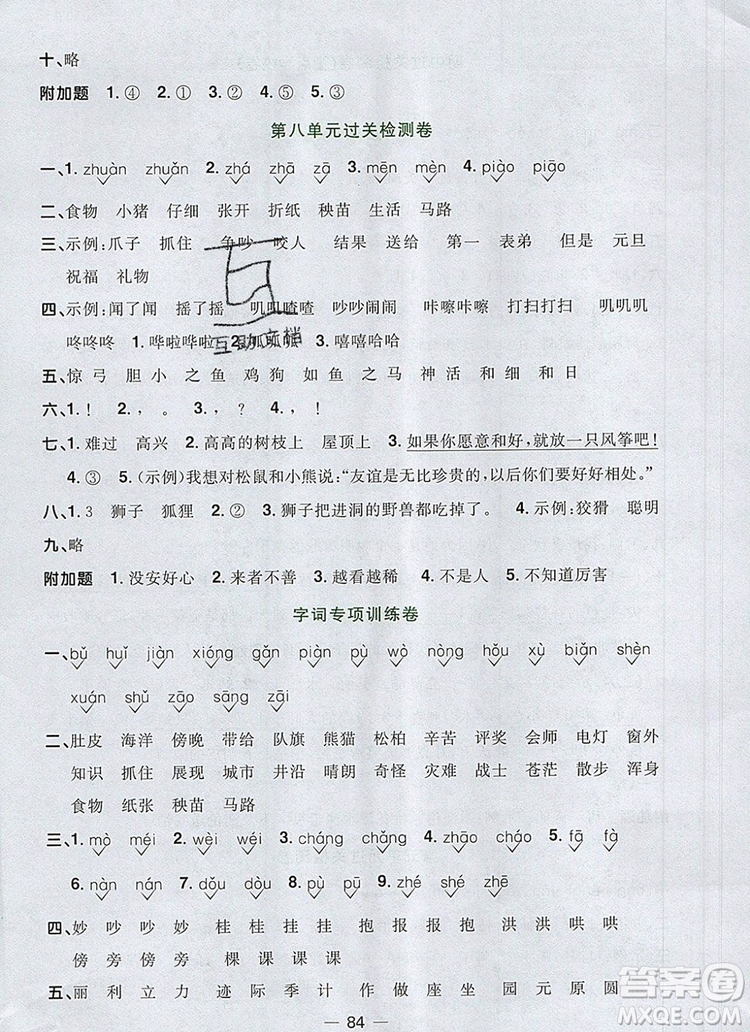 十、略
附加题 1.④ 2.① 3.② 4.⑤ 5.③
第八单元过关检测卷
一、1.zhuàn zhuǎn 2.zhá zhā zā 3.mēn mèn 4.piào piāo
二、食物 小猪 仔细 张开 折纸 秧苗 生活 马路
三、示例:爪子 抓住 争吵 咬人 结果 送给 第一 表弟 但是 元旦
祝福 礼物
四、示例:闻了闻 摇了摇 叽叽喳喳 吵吵闹闹 咔嚓咔嚓 打扫打扫 叽叽叽
咚咚咚 1.哗啦哗啦 2.叽叽 3.嘻嘻哈哈
互助文档
五、惊 弓 胆 小 之 鱼 鸡 狗 如 鱼 之 马 神 活 和 细 和 日
六、1.! 2., 。 3., , 。 4.!
七、1.难过 高兴 2.高高的树枝上 屋顶上 3.如果你愿意和好,就放一只风筝吧!
4.③ 5.(示例)我想对松鼠和小熊说:“友谊是无比珍贵的,以后你们要好好相处。”
八、1.3 狮子 狐狸 2.② 3.狮子把进洞的野兽都吃掉了。 4.示例:狡猾 聪明
九、略
附加题 1.没安好心 2.来者不善 3.越看越稀 4.不是人 5.不知道厉害
字词专项训练卷
一、bǔ huǐ jiàn xióng gǎn piàn pù wò nòng hǒu xù biǎn shèn
xuán shǔ zāo sāng zāi
二、肚皮 海洋 傍晚 带给 队旗 熊猫 松柏 辛苦 评奖 会师 电灯 窗外
知识 抓住 展现 城市 井沿 晴朗 奇怪 灾难 战士 苍茫 散步 浑身
食物 纸张 秧苗 马路
三、1.mò méi 2.wèi wéi 3.cháng chǎng 4.zhāo cháo 5.fā fà
6.nàn nán 7.dǒu dòu 8.pù pū 9.zhé shé zhē
四、妙 吵 吵 妙 桂 桂 挂 挂 抱 报 报 抱 洪 洪 哄 哄
傍 旁 傍 旁 棵 课 课 课
五、丽 利 立 力 迹 际 季 计 作 做 座 坐 园 元 原 圆
84
答案圈
MXQE.COM